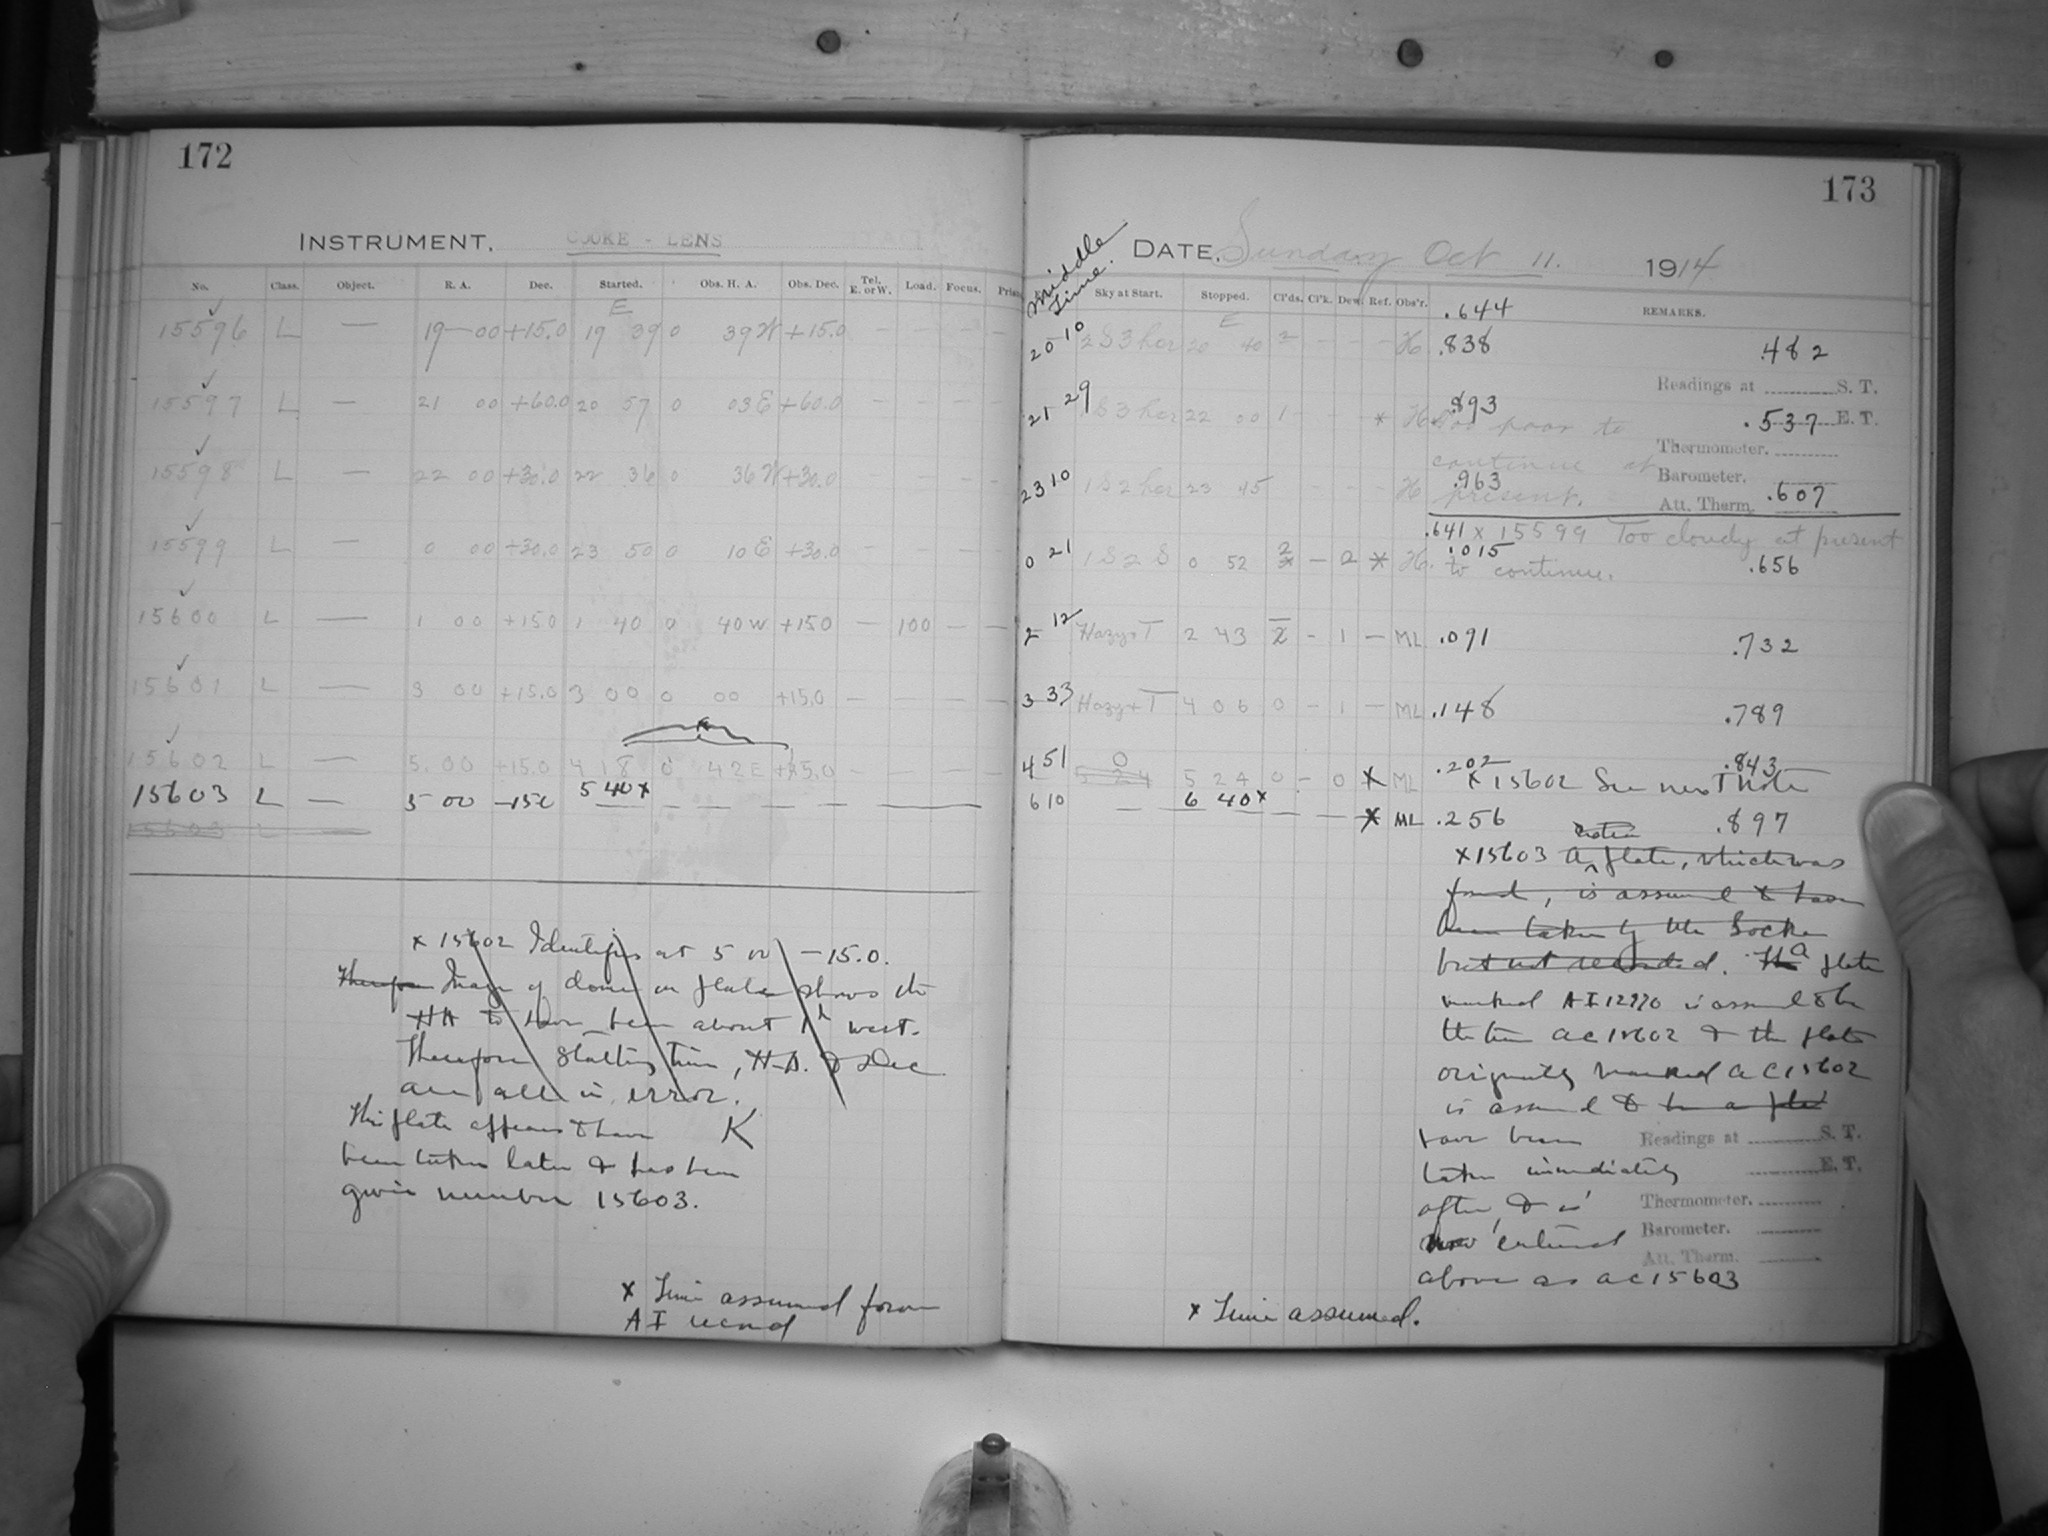 172
INSTRUMENT. COOKE - LENS
No. Class. Object. R. A. Dec. Started. Obs. H. A. Obs. Dec. Tel. E. or W. Load. Focus.
E
15596 L — 19 00 +15.0 19 39 0 39 W +15.0 — — — —
15597 L — 21 00 +60.0 20 57 0 03 E +60.0 — — — —
15598 L — 22 00 +30.0 22 36 0 36 W +30.0 — — —
15599 L — 0 00 +30.0 23 50 0 10 E +30.0 — — — —
15600 L — 1 00 +15.0 1 40 0 40 W +15.0 — 100 — —
15601 L — 3 00 +15.0 3 00 0 00 +15.0 — — — —
15602 L — 5.00 +15.0 4 18 0 42 E +15.0 — — — —
15603 L — 5 00 —15.0 5 40 x — — — — —
15603 L —
x 15602 Identifies at 5 00 —15.0.
Therefore Image of dome on plate shows the
HA to have been about 1h west.
Therefore starting time, H.A. & Dec
are all in error.
This plate appears to have K
been taken later & has been
given number 15603.
x Time assumed from
A I record
173
Middle Time.
DATE. Sunday Oct 11. 1914
Sky at Start. Stopped. Cl'ds. Cl'k. Dew. Ref. Obs'r. REMARKS.
.644
E
20 10 2 S 3 hor 20 40 2 — — — H .838 .482
Readings at S. T.
21 29 1 S 3 hor 22 00 1 — — * H .893 .537 E. T.
Too poor to
Thermometer.
continue at
Barometer.
23 10 1 S 2 hor 23 45 — — — H .963 .607
present. Att. Therm.
.641 x 15599 Too cloudy at present
0 21 1 S 2 S 0 52 2 — 2 * H. .015 .656
to continue.
2 12 Hazy + T 2 43 2 — 1 — ML .091 .732
3 33 Hazy + T 4 06 0 — 1 — ML .148 .789
4 51 0 5 24 5 24 0 — 0 * ML .202 .843
x 15602 See next Note
6 10 — 6 40 x — — — * ML .256 .897
x 15603 A certain plate, which was
found, is assumed to have
been taken by the Cooke
but not recorded. The a plate
marked A I 12970 is assumed to be
the true AC 15602 & the plate
originally marked AC 15602
is assumed to be a plate
have been
taken immediately
after, & is
now entered
above as AC 15603
Readings at S. T.
E. T.
Thermometer.
Barometer.
Att. Therm.
x Time assumed.